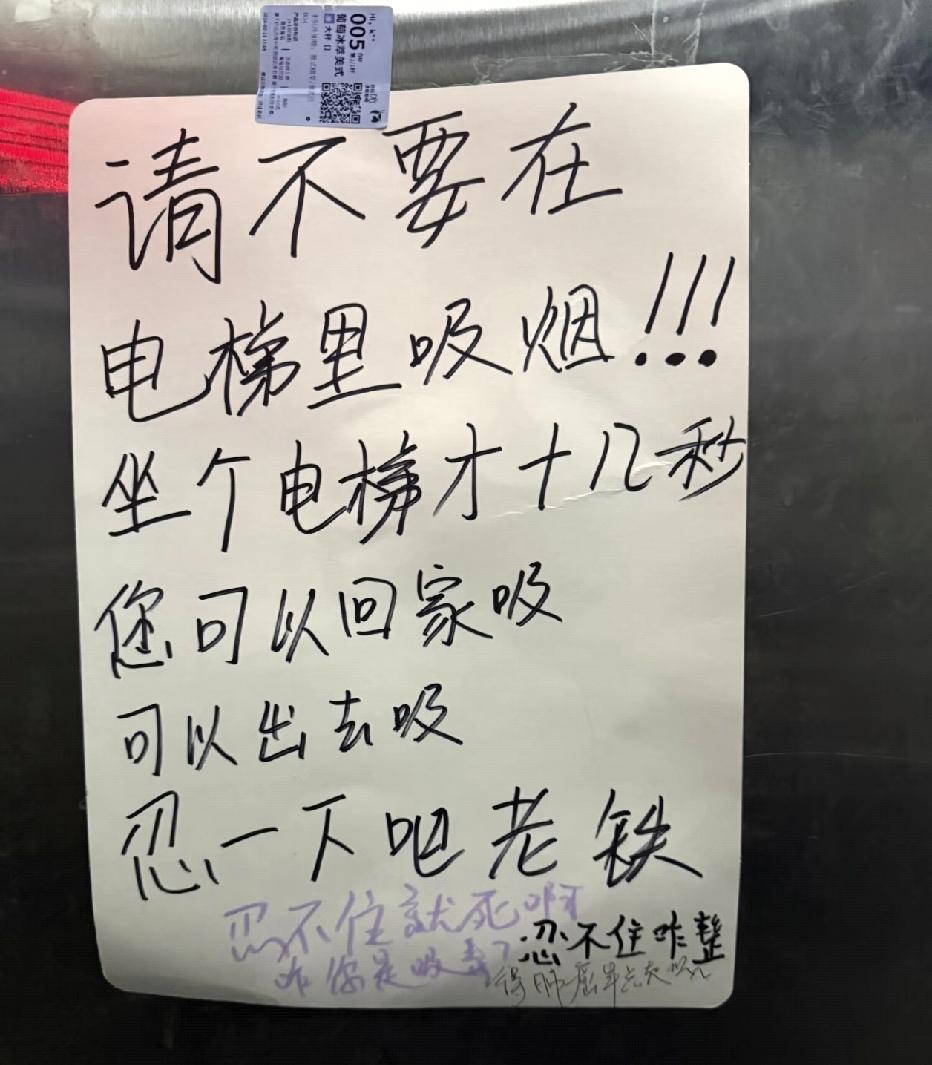 005
葡萄冰萃美式
大杯
请不要在
电梯里吸烟!!!
坐个电梯才十几秒
您可以回家吸
可以出去吸
忍一下吧老铁
忍不住就死啊
忍不住咋整
咋你是吸毒了
得肺癌早点